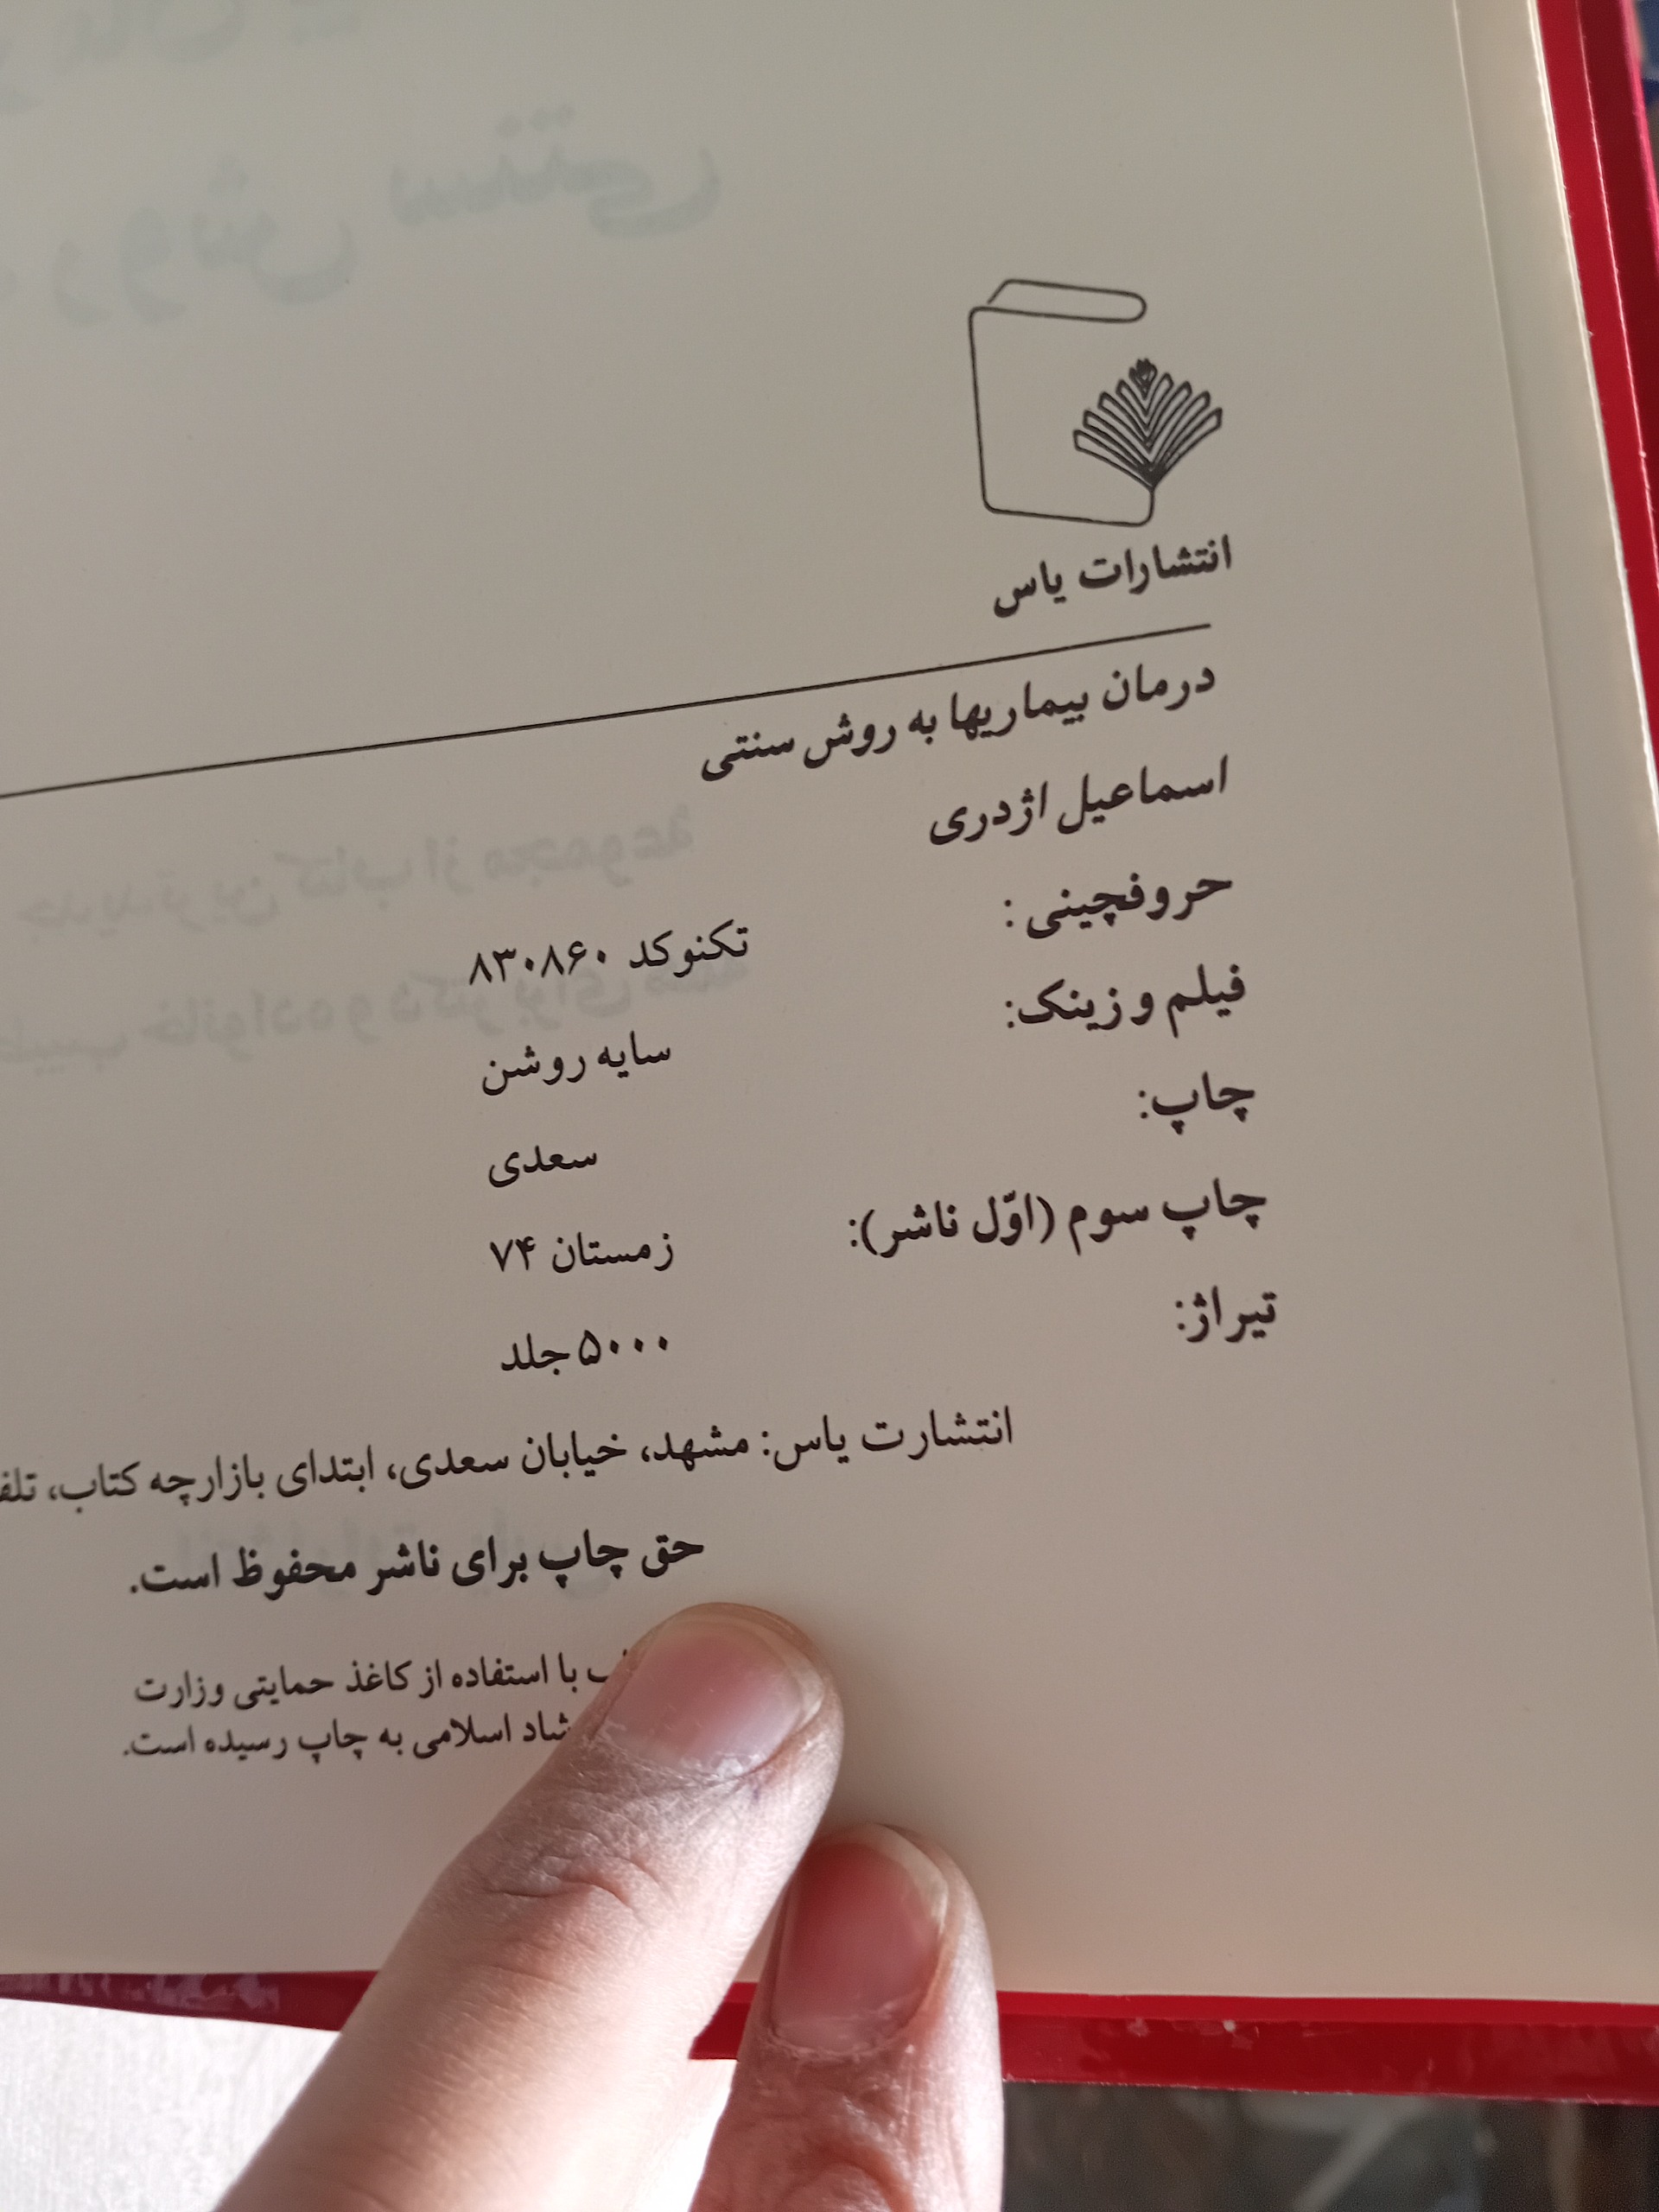 انتشارات یاس
درمان بیماریها به روش سنتی
اسماعیل اژدری
حروفچینی : تکنوکد ۸۳۰۸۶۰
فیلم و زینک: سایه روشن
چاپ: سعدی
چاپ سوم (اوّل ناشر): زمستان ۷۴
تیراژ: ۵۰۰۰ جلد
انتشارت یاس: مشهد، خیابان سعدی، ابتدای بازارچه کتاب،
حق چاپ برای ناشر محفوظ است.
با استفاده از کاغذ حمایتی وزارت
اسلامی به چاپ رسیده است.